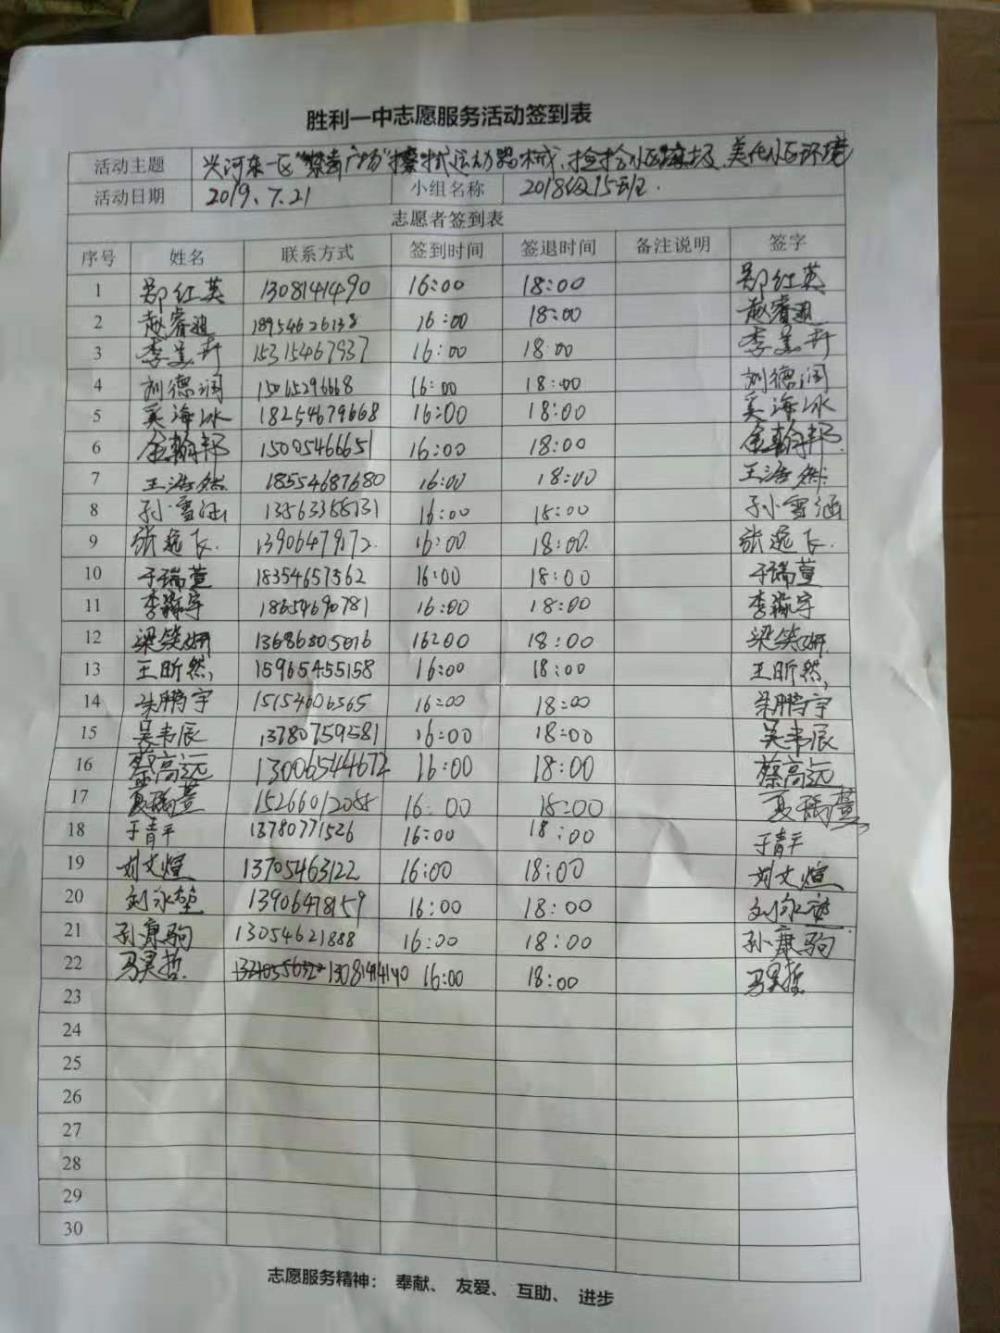 胜利一中志愿服务活动签到表
活动主题 兴河东一区"紫薇广场"擦拭运动器械,捡拾小区垃圾,美化小区环境
活动日期 2019.7.21 小组名称 2018级15班.
志愿者签到表
序号 姓名 联系方式 签到时间 签退时间 备注说明 签字
1 郑红英 1308141490 16:00 18:00 郑红英
2 赵睿 18954626138 16:00 18:00 赵睿
3 李昱卉 15315467937 16:00 18:00 李昱卉
4 刘德润 15065296668 16:00 18:00 刘德润
5 奚海冰 18254679668 16:00 18:00 奚海冰
6 金翰邦 15005466651 16:00 18:00 金翰邦
7 王浩然 18554687680 16:00 18:00 王浩然
8 孙雪涵 16:00 18:00 孙雪涵
9 张逸飞 13906479172 16:00 18:00 张逸飞
10 于瑞萱 18354657562 16:00 18:00 于瑞萱
11 李 宇 18654690781 16:00 18:00 李 宇
12 梁笑妍 13686305016 16:00 18:00 梁笑妍
13 王昕然 15965455158 16:00 18:00 王昕然
14 朱鹏宇 15154606565 16:00 18:00 朱鹏宇
15 吴韦辰 13780759581 16:00 18:00 吴韦辰
16 蔡高远 13006544672 16:00 18:00 蔡高远
17 夏瑞萱 15266012058 16:00 18:00 夏瑞萱
18 于青平 13780771526 16:00 18:00 于青平
19 刘文煊 13705463122 16:00 18:00 刘文煊
20 刘永堃 13906478159 16:00 18:00 刘永堃
21 孙康驹 13054621888 16:00 18:00 孙康驹
22 马昊哲 13081414140 16:00 18:00 马昊哲
23
24
25
26
27
28
29
30
志愿服务精神: 奉献、 友爱、 互助、 进步